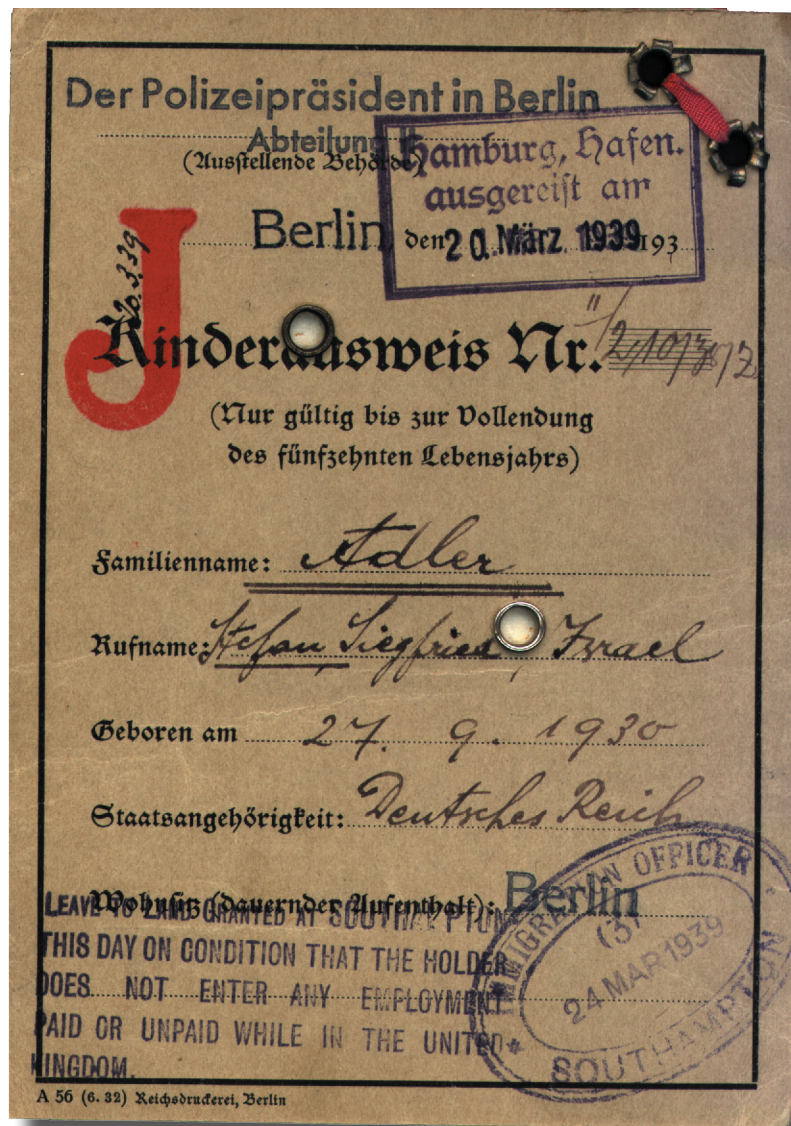 Der Polizeipräsident in Berlin
Abteilung II
(Ausstellende Behörde)
Hamburg, Hafen.
ausgereist am
20. März 1939
Berlin, den 193
J
Kinderausweis Nr.
(Nur gültig bis zur Vollendung
des fünfzehnten Lebensjahrs)
Familienname: Adler
Rufname: Stefan, Siegfried, Israel
Geboren am 27. 9. 1930
Staatsangehörigkeit: Deutsches Reich
Wohnsitz (dauernder Aufenthalt): Berlin
LEAVE TO LAND GRANTED AT SOUTHAMPTON
THIS DAY ON CONDITION THAT THE HOLDER
DOES NOT ENTER ANY EMPLOYMENT
PAID OR UNPAID WHILE IN THE UNITED
KINGDOM.
IMMIGRATION OFFICER
(3)
24 MAR 1939
* SOUTHAMPTON
A 56 (6. 32) Reichsdruckerei, Berlin